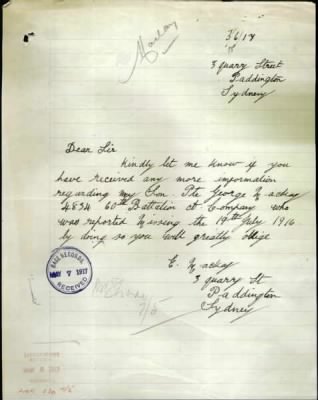 Mackay
3/5/17
3 quarry Street
Paddington
Sydney
Dear Sir
Kindly let me know if you
have received any more information
regarding my Son. Pte George Mackay
4834 60th Battalion Company who
was reported Missing the 19th July 1916
by doing so you will greatly oblige
E. Mackay
3 quarry St
Paddington
Sydney
BASE RECORDS
MAY 7 1917
RECEIVED
7/5